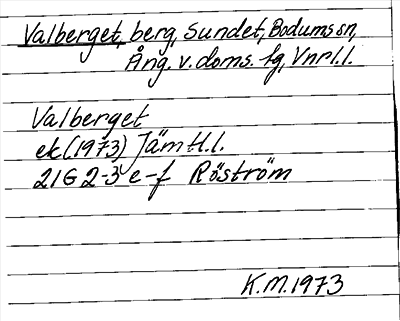 Valberget, berg, Sundet, Bodums sn,
Ång. v. doms. fg, Vnrl. l.
Valberget
ek (1973) Jämtl. l.
21G 2-3 e-f Röström
K.M. 1973